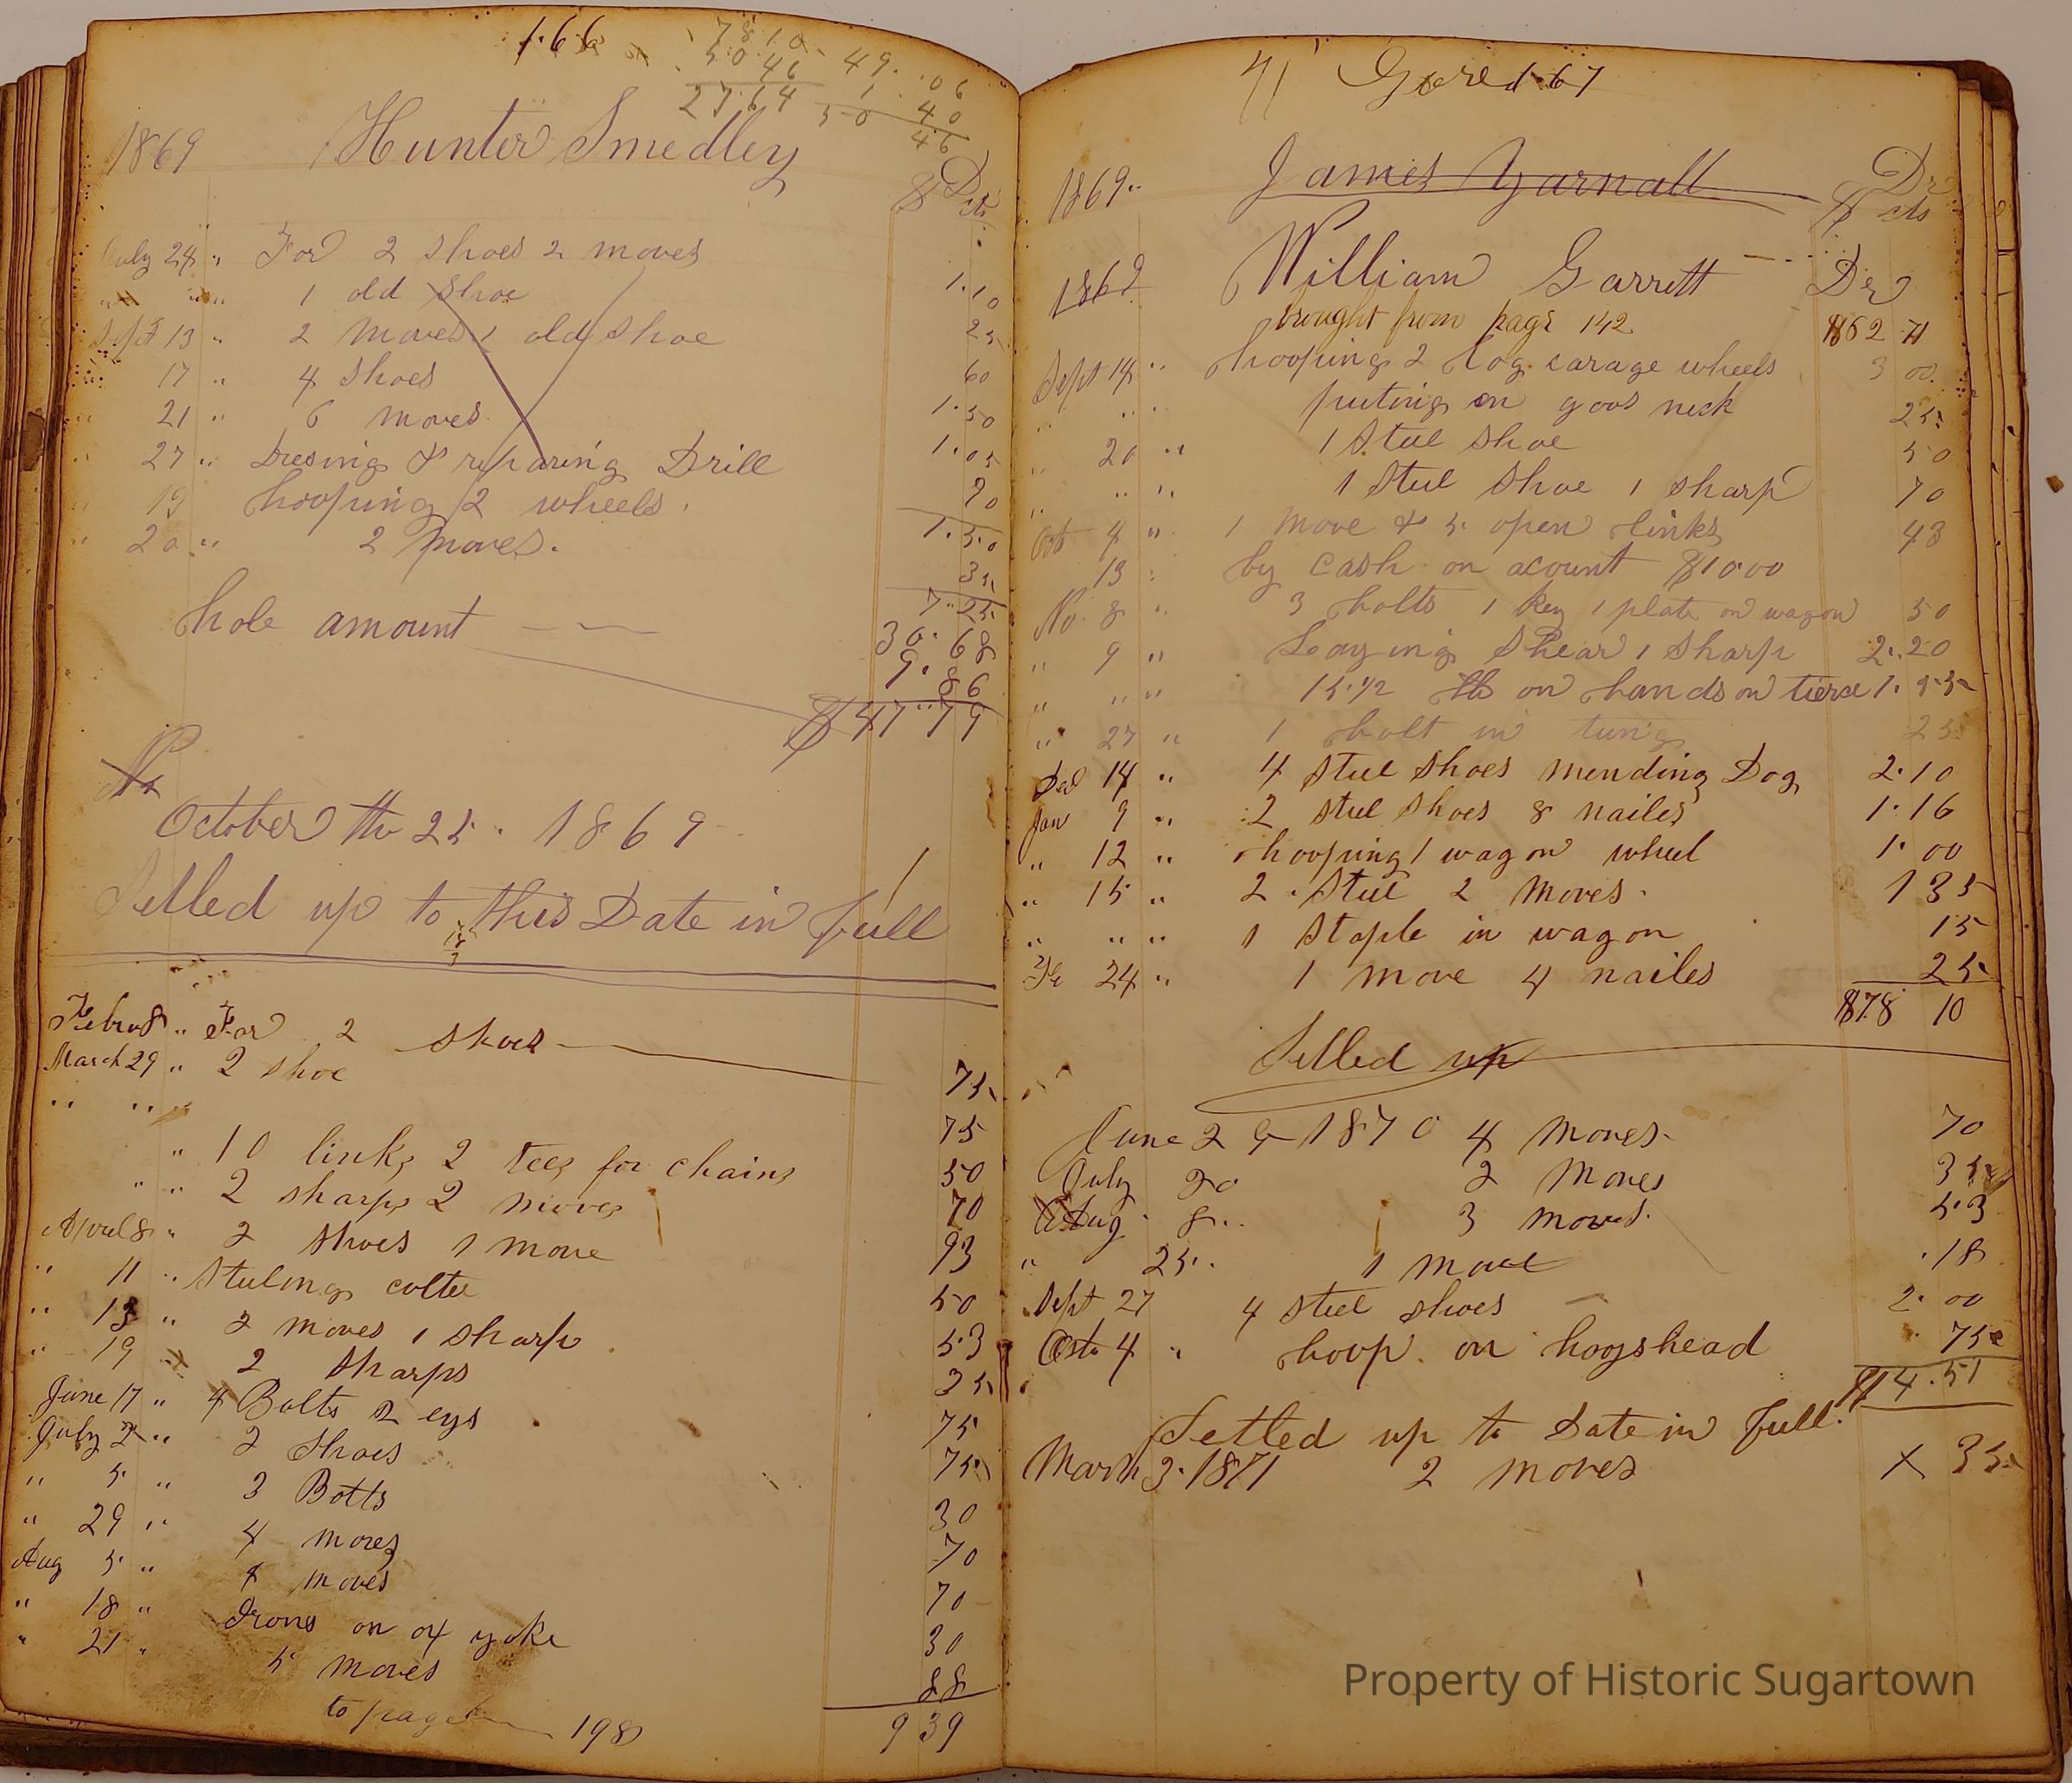 1.66
7810
5046
2764
49.06
1.40
50 46
1869 Hunter Smedley
Dr
$ cts
July 24 " For 2 shoes 2 moves 1.10
" " " 1 old shoe 25
Sept 13 " 2 moves 1 old shoe 60
17 " 4 shoes 1.50
21 " 6 moves 1.05
27 " Dresing & reparing Drill 90
19 hooping 2 wheels. 1.50
20 " 2 moves. 35
7.25
hole amount 30.68
9.86
$47.79
October th 25. 1869
Setled up to this Date in full
Febru 8 " For 2 shoes 75
March 29 " 2 shoe 75
" " " 10 links 2 tees for chains 50
" " 2 sharps 2 moves 70
Aprul 8 " 2 shoes 1 move 93
" 11 " Steeling colter 50
" 13 " 2 moves 1 sharp 53
" 19 2 sharps 35
June 17 " 4 Bolts 2 eys 75
July 2 " 2 shoes 75
" 5 " 3 Botts 30
" 29 " 4 moves 70
Aug 5 " 4 moves 70
" 18 " Irons on ox yoke 30
" 21 " 5 moves 88
to page 198 939
67
1869 " James Yarnall Dr
$ cts
1869 William Garrett Der
brought from page 142 $62 71
Sept 14 " hooping 2 Dog carage wheels 3 00
" " puting on goos neck 25
" 20 " 1 Steel shoe 50
" " " 1 Steel shoe 1 sharp 70
Oct 4 " 1 move & 5 open links 43
13 " by cash on acount $10.00
No. 8 " 3 bolts 1 key 1 plate on wagon 50
" 9 " Laying Shear 1 sharp 2.20
" " " 15.1/2 lbs on hands on tierse 1.55
" 27 " 1 bolt in tung 25
Dec 14 " 4 steel shoes mending Dog 2.10
Jan 9 " 2 steel shoes 8 nailes 1.16
" 12 " hooping 1 wagon wheel 1.00
" 15 " 2 Steel 2 moves. 1 35
" " " 1 staple in wagon 15
Fe 24 " 1 move 4 nailes 25
$78 10
Setled up
June 29 1870 4 moves 70
July 20 2 moves 35
Aug 8 " 3 moves. 53
" 25. 1 move .18
Sept 27 4 steel shoes 2.00
Octo 4 " hoop on hogshead 75
$4.51
Setled up to Date in full.
March 3. 1871 2 moves X 35
Property of Historic Sugartown